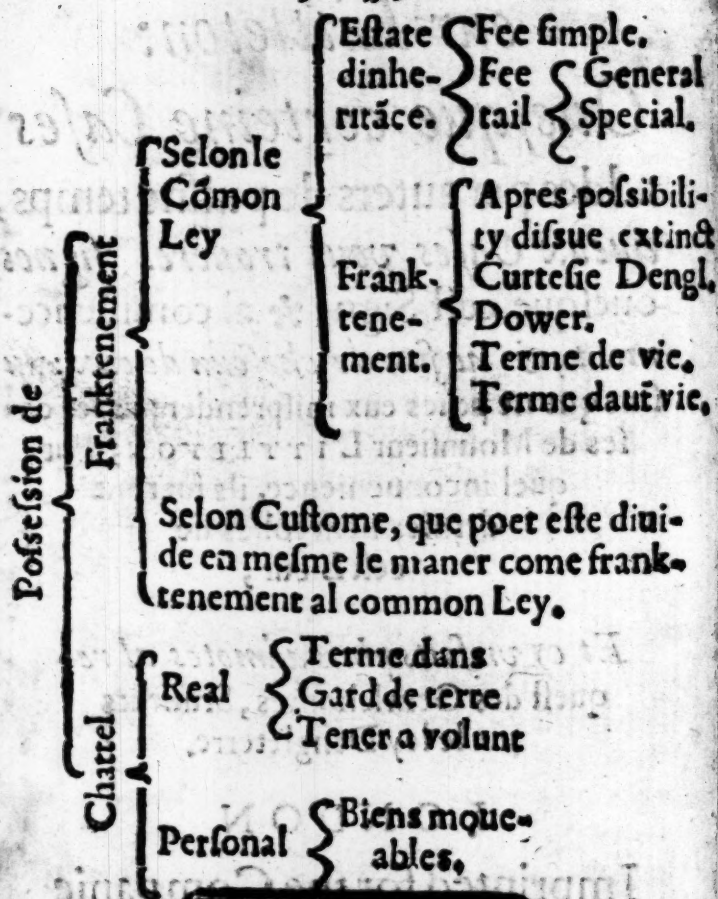 Poſseſsion de
Franktenement
Selon le
Cõmon
Ley
Eſtate
dinhe-
ritãce.
Fee ſimple.
Fee
tail
General
Special.
Frank-
tene-
ment.
Apres poſsibili-
ty diſsue extinct
Curteſie Dengl.
Dower.
Terme de vie.
Terme daut̃ vie.
Selon Cuſtome, que poet eſte diui-
de en meſme le maner come frank-
tenement al common Ley.
Chattel
Real
Terme dans
Gard de terre
Tener a volunt
Perſonal
Biens moue-
ables.